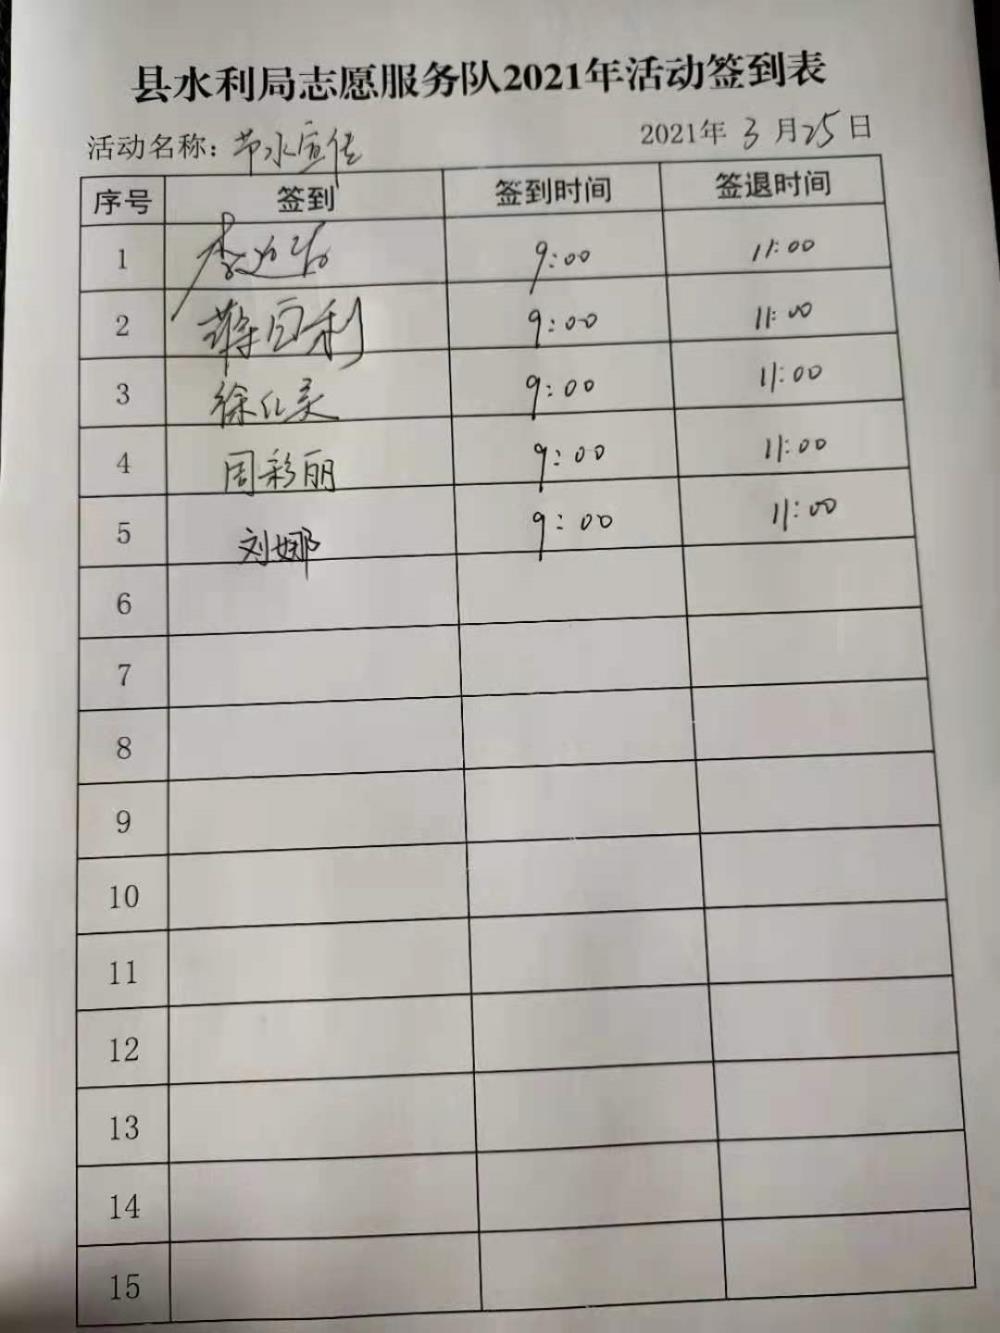 县水利局志愿服务队2021年活动签到表
活动名称：节水宣传 2021年 3 月 25 日
序号 签到 签到时间 签退时间
1 李 9:00 11:00
2 蒋自利 9:00 11:00
3 徐 9:00 11:00
4 周彩丽 9:00 11:00
5 刘娜 9:00 11:00
6
7
8
9
10
11
12
13
14
15